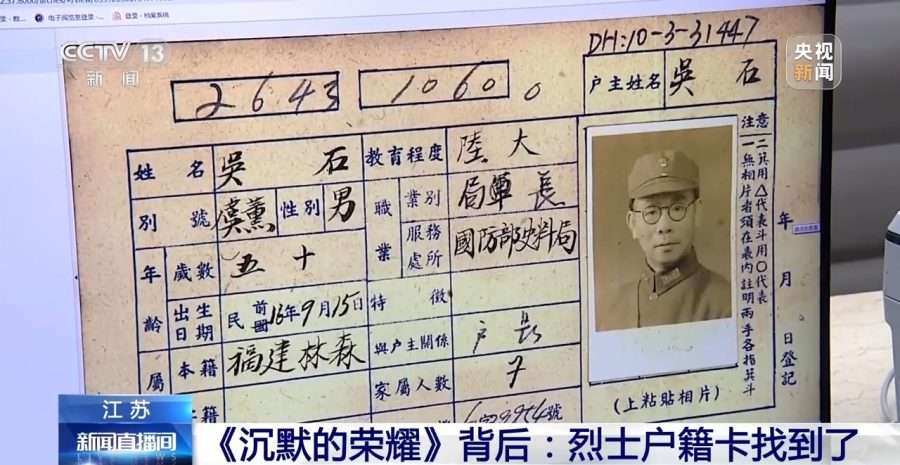 CCTV 13
新闻
央视
新闻
DH:10-3-31447
2643
1060
户主姓名
吳石
姓名
吳石
教育程度
陸大
別號
虞薰
性別
男
職業
業別
軍
局長
服務處所
國防部史料局
年齡
歲數
五十
出生日期
民前國16年9月15日
特徵
本籍
福建林森
與户主關係
户長
家屬人數
7
注意
一無相片者須在表內註明兩手各指箕斗
二箕用△代表斗用○代表
年月日登記
(上粘貼相片)
江苏
新闻直播间
LIVE NEWS
《沉默的荣耀》背后：烈士户籍卡找到了